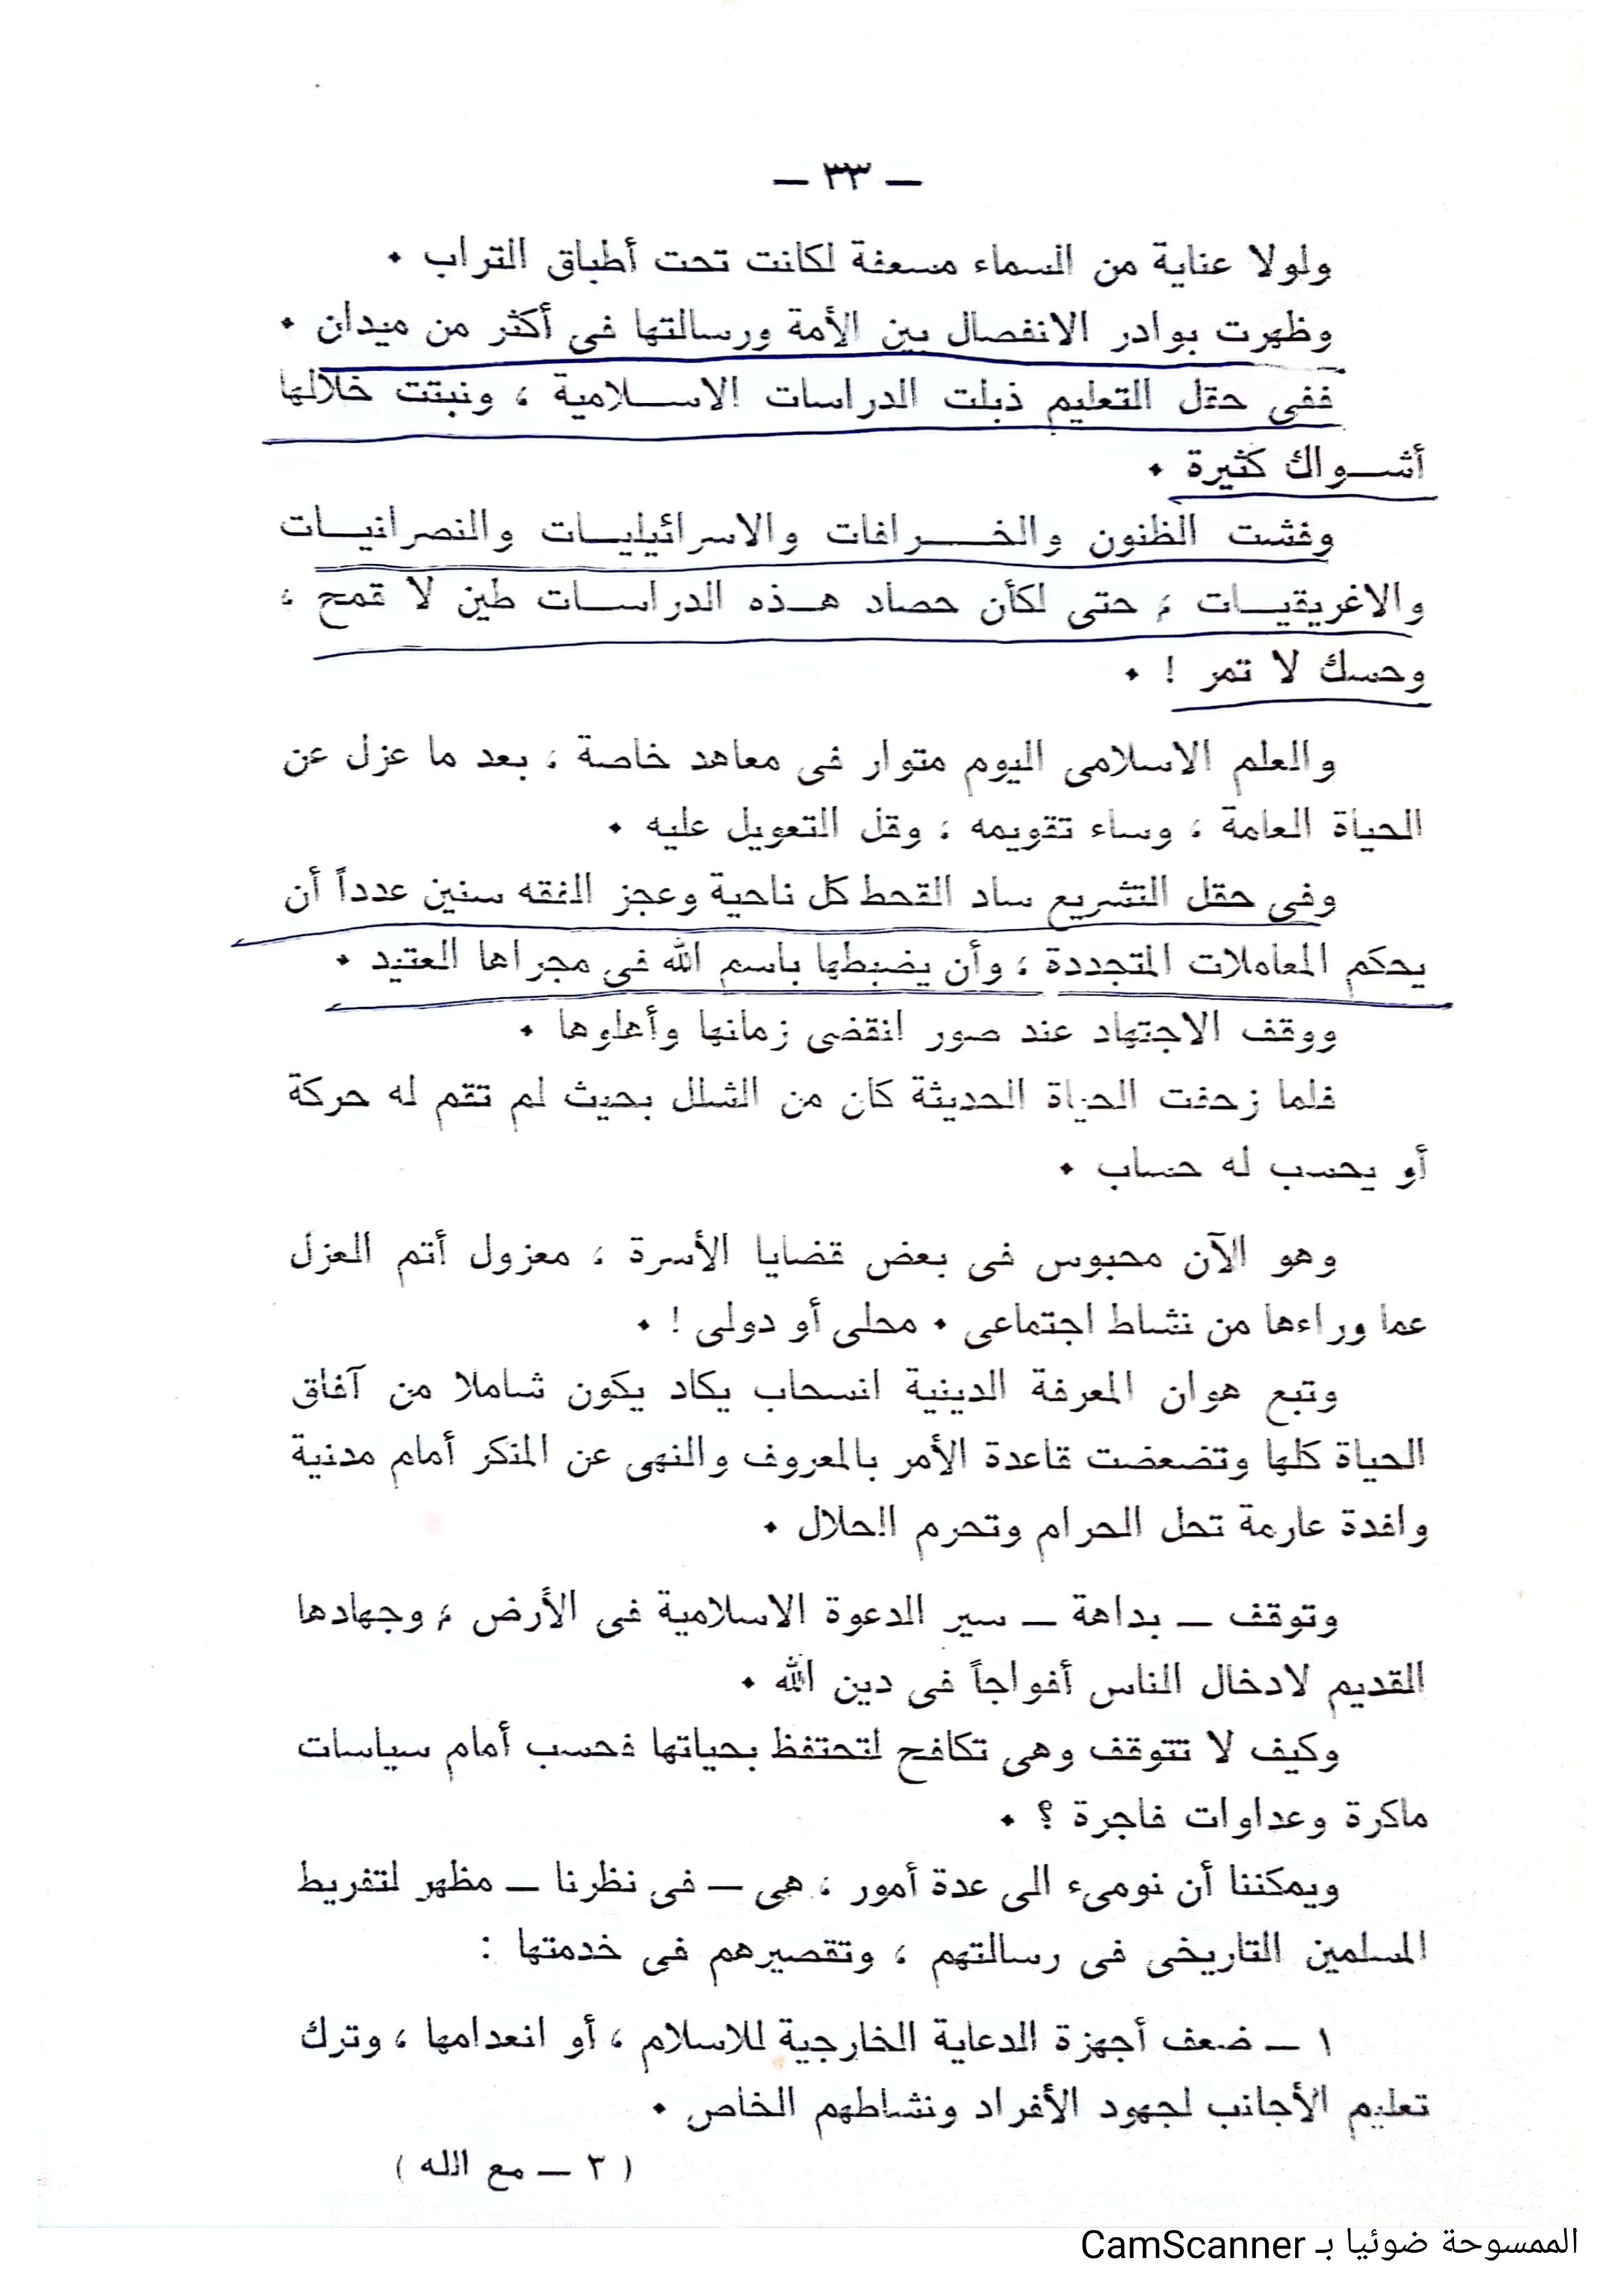 — ٣٣ —
ولولا عناية من السماء مسعفة لكانت تحت أطباق التراب .
وظهرت بوادر الانفصال بين الأمة ورسالتها فى أكثر من ميدان .
ففى حقل التعليم ذبلت الدراسات الاسلامية ، ونبتت خلالها
أشواك كثيرة .
وفشت الظنون والخرافات والاسرائيليات والنصرانيات
والاغريقيات ، حتى لكأن حصاد هذه الدراسات طين لا قمح ،
وحسك لا تمر ! .
والعلم الاسلامى اليوم متوار فى معاهد خاصة ، بعد ما عزل عن
الحياة العامة ، وساء تقويمه ، وقل التعويل عليه .
وفى حقل التشريع ساد القحط كل ناحية وعجز الفقه سنين عدداً أن
يحكم المعاملات المتجددة ، وأن يضبطها باسم الله فى مجراها العتيد .
ووقف الاجتهاد عند صور انقضى زمانها وأهلوها .
فلما زحفت الحياة الحديثة كان من الشلل بحيث لم تقم له حركة
أو يحسب له حساب .
وهو الآن محبوس فى بعض قضايا الأسرة ، معزول أتم العزل
عما وراءها من نشاط اجتماعى . محلى أو دولى ! .
وتبع هوان المعرفة الدينية انسحاب يكاد يكون شاملا من آفاق
الحياة كلها وتضعضت قاعدة الأمر بالمعروف والنهى عن المنكر أمام مدنية
وافدة عارمة تحل الحرام وتحرم الحلال .
وتوقف — بداهة — سير الدعوة الاسلامية فى الأرض ، وجهادها
القديم لادخال الناس أفواجاً فى دين الله .
وكيف لا تتوقف وهى تكافح لتحتفظ بحياتها فحسب أمام سياسات
ماكرة وعداوات فاجرة ؟ .
ويمكننا أن نومىء الى عدة أمور ، هى — فى نظرنا — مظهر لتفريط
المسلمين التاريخى فى رسالتهم ، وتقصيرهم فى خدمتها :
١ — ضعف أجهزة الدعاية الخارجية للاسلام ، أو انعدامها ، وترك
تعليم الأجانب لجهود الأفراد ونشاطهم الخاص .
( ٣ — مع الله )
الممسوحة ضوئيا بـ CamScanner